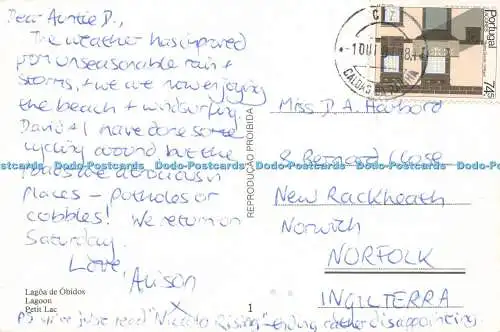 Dear Auntie D.,
The weather has improved
from unseasonable rain &
storms, & we are now enjoying
the beach & windsurfing.
David & I have done some
cycling around but the
roads are atrocious in
places – potholes or
cobbles! We return on
Saturday.
Love,
Alison
X
Lagôa de Óbidos
Lagoon
Petit Lac
1
PS I've just read "Rising" – ending rather disappointing.
REPRODUÇÃO PROIBIDA
CALDAS DA
Portugal
74$
Miss D. A. Harbord
8 Bernard Close
New Rackheath
Norwich
NORFOLK
INGILTERRA
Dodo-Postcards Dodo-Postcards Dodo-Postcards Dodo-Postcards Dodo-Postcards Dodo-Postcards